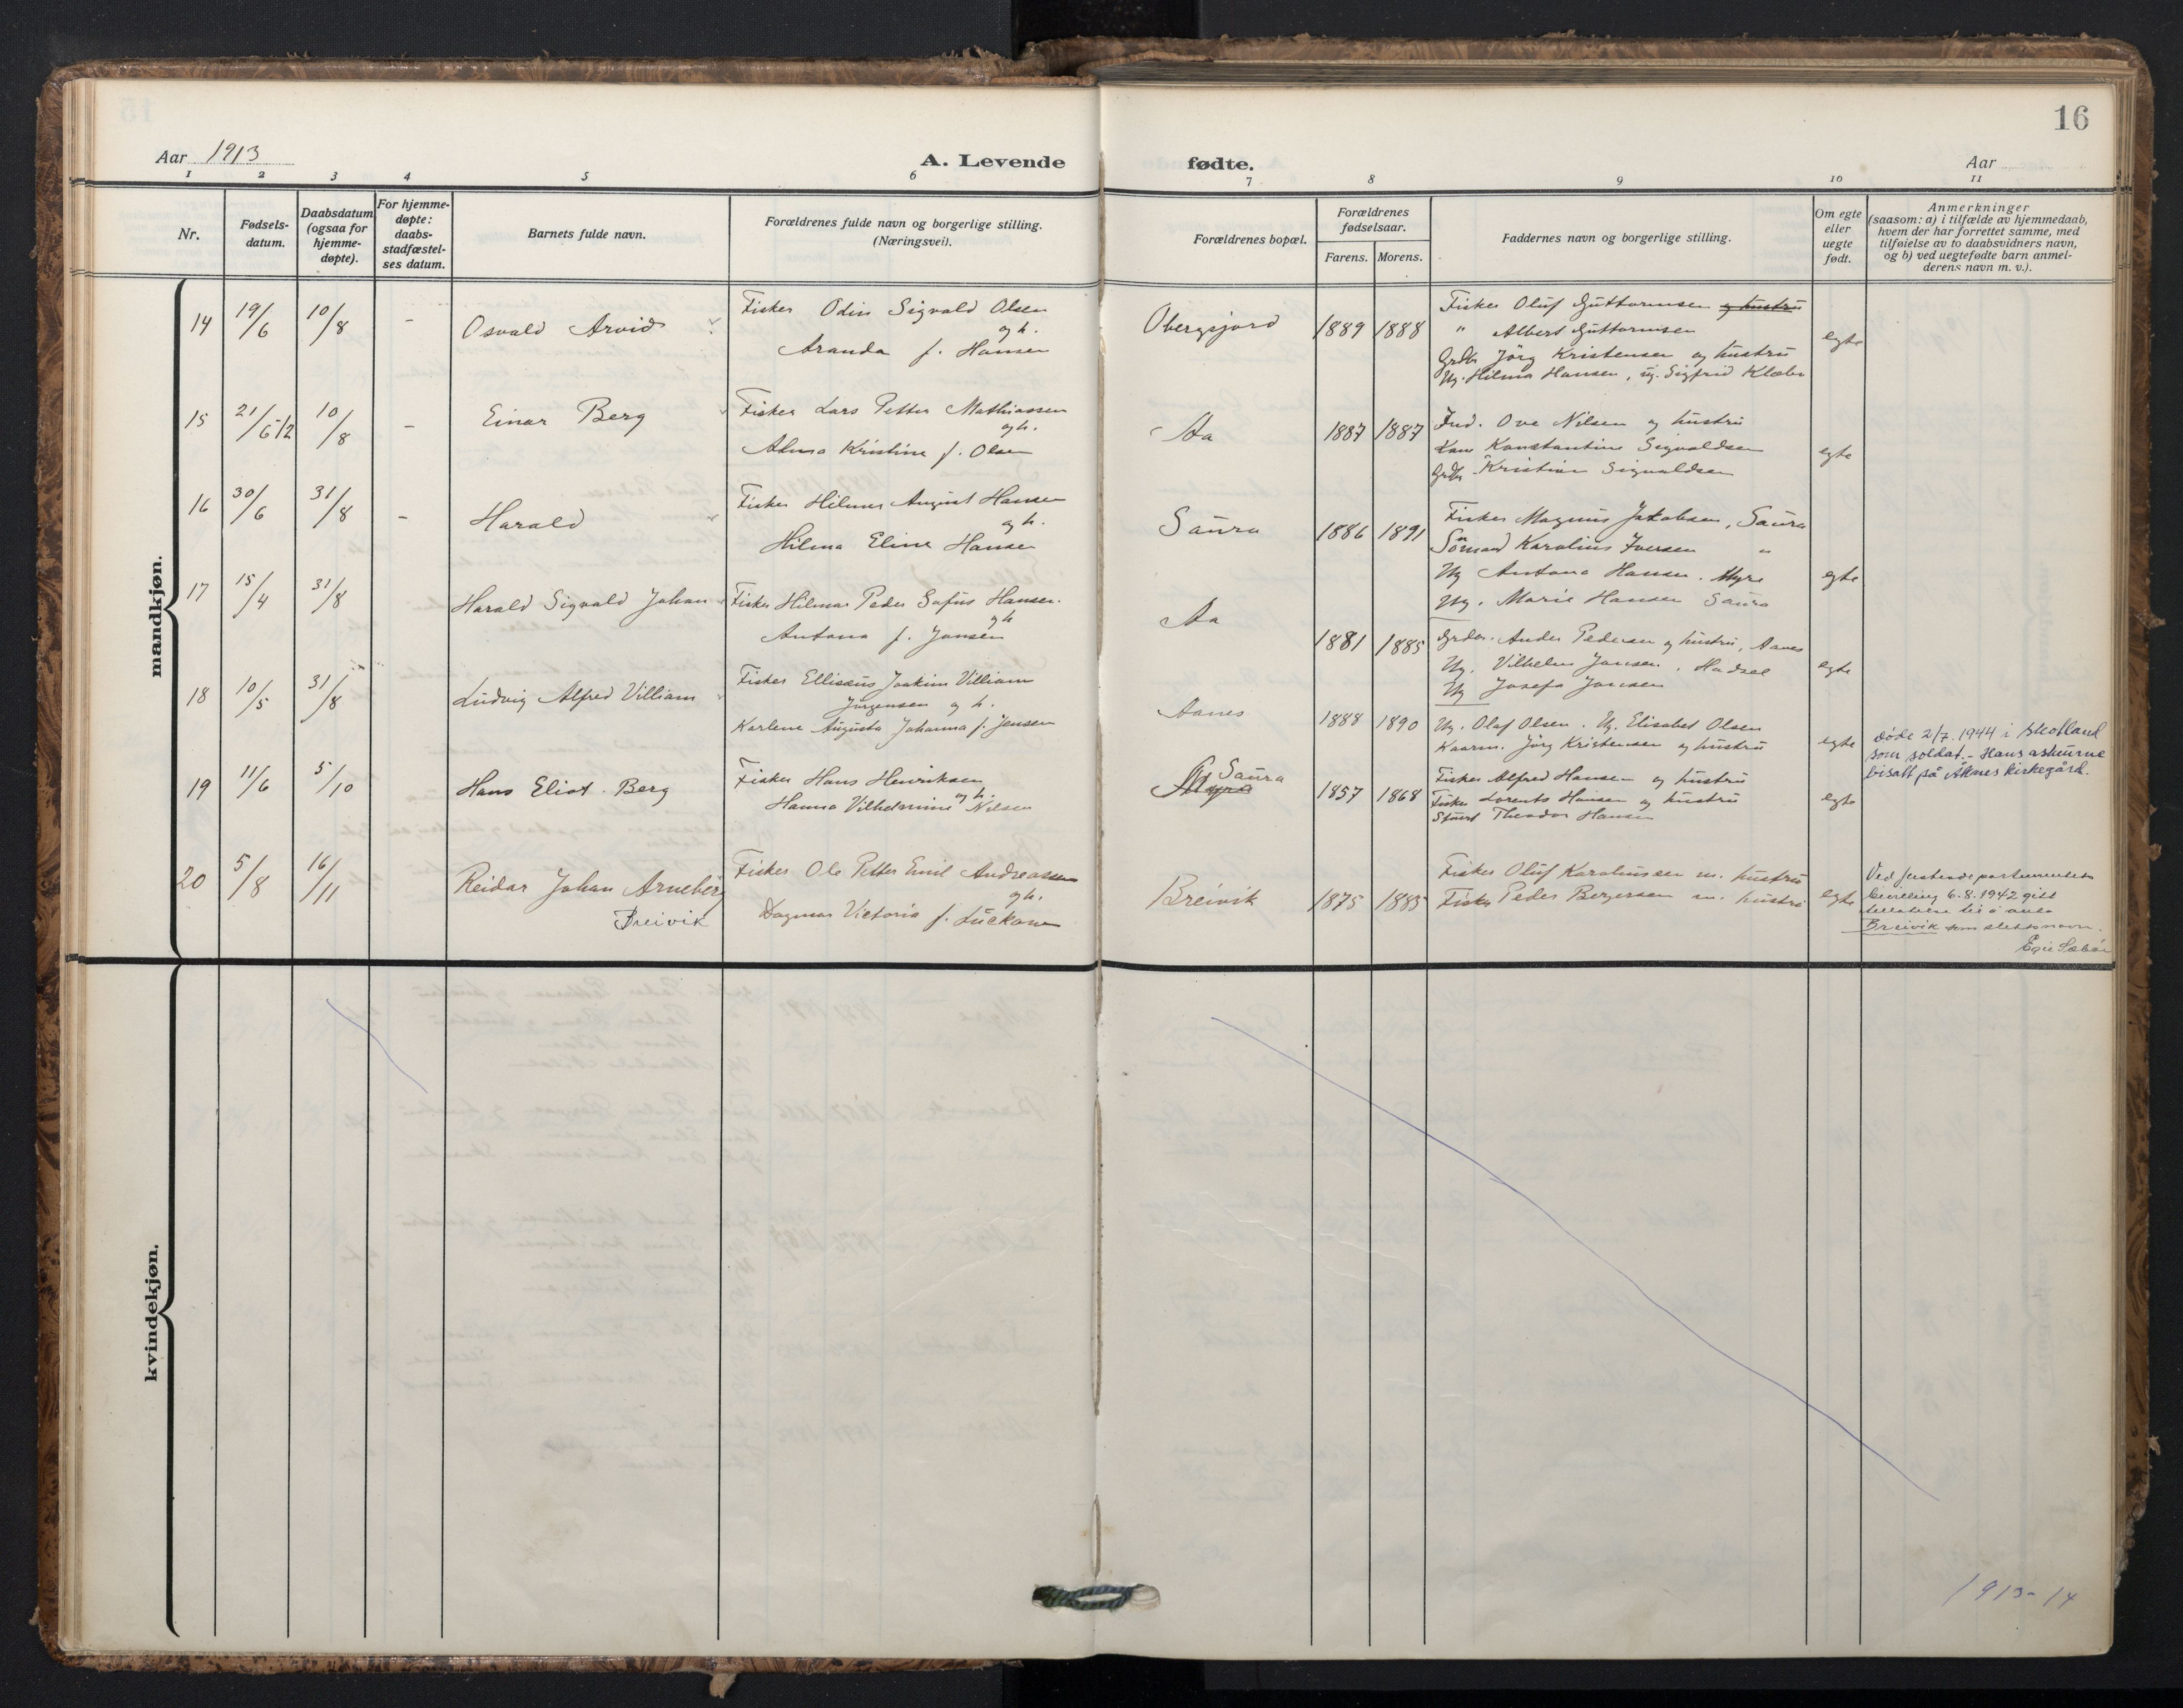 16
Aar 1913
A. Levende fødte.
Aar
1 2 3 4 5 6 7 8 9 10 11
Nr.
Fødsels-
datum.
Daabsdatum
(ogsaa for
hjemme-
døpte).
For hjemme-
døpte:
daabs-
stadfæstel-
ses datum.
Barnets fulde navn.
Forældrenes fulde navn og borgerlige stilling.
(Næringsvei).
Forældrenes bopæl.
Forældrenes
fødselsaar.
Farens. Morens.
Faddernes navn og borgerlige stilling.
Om egte
eller
uegte
født.
Anmerkninger
(saasom: a) i tilfælde av hjemmedaab,
hvem der har forrettet samme, med
tilføielse av to daabsvidners navn,
og b) ved uegtefødte barn anmel-
derens navn m. v.).
mandkjøn.
14 19/6 10/8 - Osvald Arvid
Fisker Odin Sigvald Olsen
og h.
Aranda f. Hansen
1889 1888
Fisker Oluf Guttormsen og hustru
" Albert Guttormsen
Grdbr Jörg Kristensen og hustru
Ug. Hilma Hansen, ug. Sigfrid Klæbo
egte
15 21/6 10/8 - Einar Berg
Fisker Lars Petter Mathiassen
og h.
Alma Kristine f. Olsen
Aa
1887 1887
Ind. Ove Nilsen og hustru
Konstantine Sigvaldsen
Grdbr Kristian Sigvaldsen
egte
16 30/6 31/8 - Harald
Fisker Hilmer August Hansen
og h.
Hilma Eline Hansen
Saura
1886 1891
Fisker Magnus Jakobsen, Saura
Sömand Karolius Iversen "
Ug Antona Hansen. Myre
Ug. Marie Hansen Saura
egte
17 15/4 31/8 Harald Sigvald Johan
Fisker Hilmar Peder Sofus Hansen.
og h
Antona f. Jansen
Aa
1881 1885
Grdbr. Ander Pedersen og hustru, Aanes
Ug. Vilhelm Jansen. Hadsel
Ug Josefa Jansen
egte
18 10/5 31/8 Ludvig Alfred Villiam
Fisker Ellisæus Joakim Villiam
Jörgensen og h.
Karlene Augusta Johanna f. Jensen
Aanes
1888 1890
Ug. Olaf Olsen. Ug. Elisabet Olsen
Kaarm. Jörg Kristensen og hustru
egte
Døde 2/7. 1944 i Skotland
som soldat. - Hans askeurne
bisatt på Aknes kirkegård.
19 11/6 5/10 Hans Eliot Berg
Fisker Hans Henriksen
og h.
Hanna Vilhelmine Nilsen
Saura
Myre
1857 1868
Fisker Alfred Hansen og hustru
Fisker Lorents Hansen og hustru
Theodor Hansen
egte
20 5/8 16/11 Reidar Johan Arneberg
Breivik
Fisker Ole Petter Emil Andreassen
og h.
Dagmar Victoria f. Luckow
Breivik
1875 1885
Fisker Oluf Karoliussen m. hustru
Fisker Peder Bergersen m. hustru
egte
Ved Justisdepartementets
bevilling 6.8.1942 gitt
tillatelse til å anta
Breivik som slektsnavn.
kvindekjøn.
1913-14